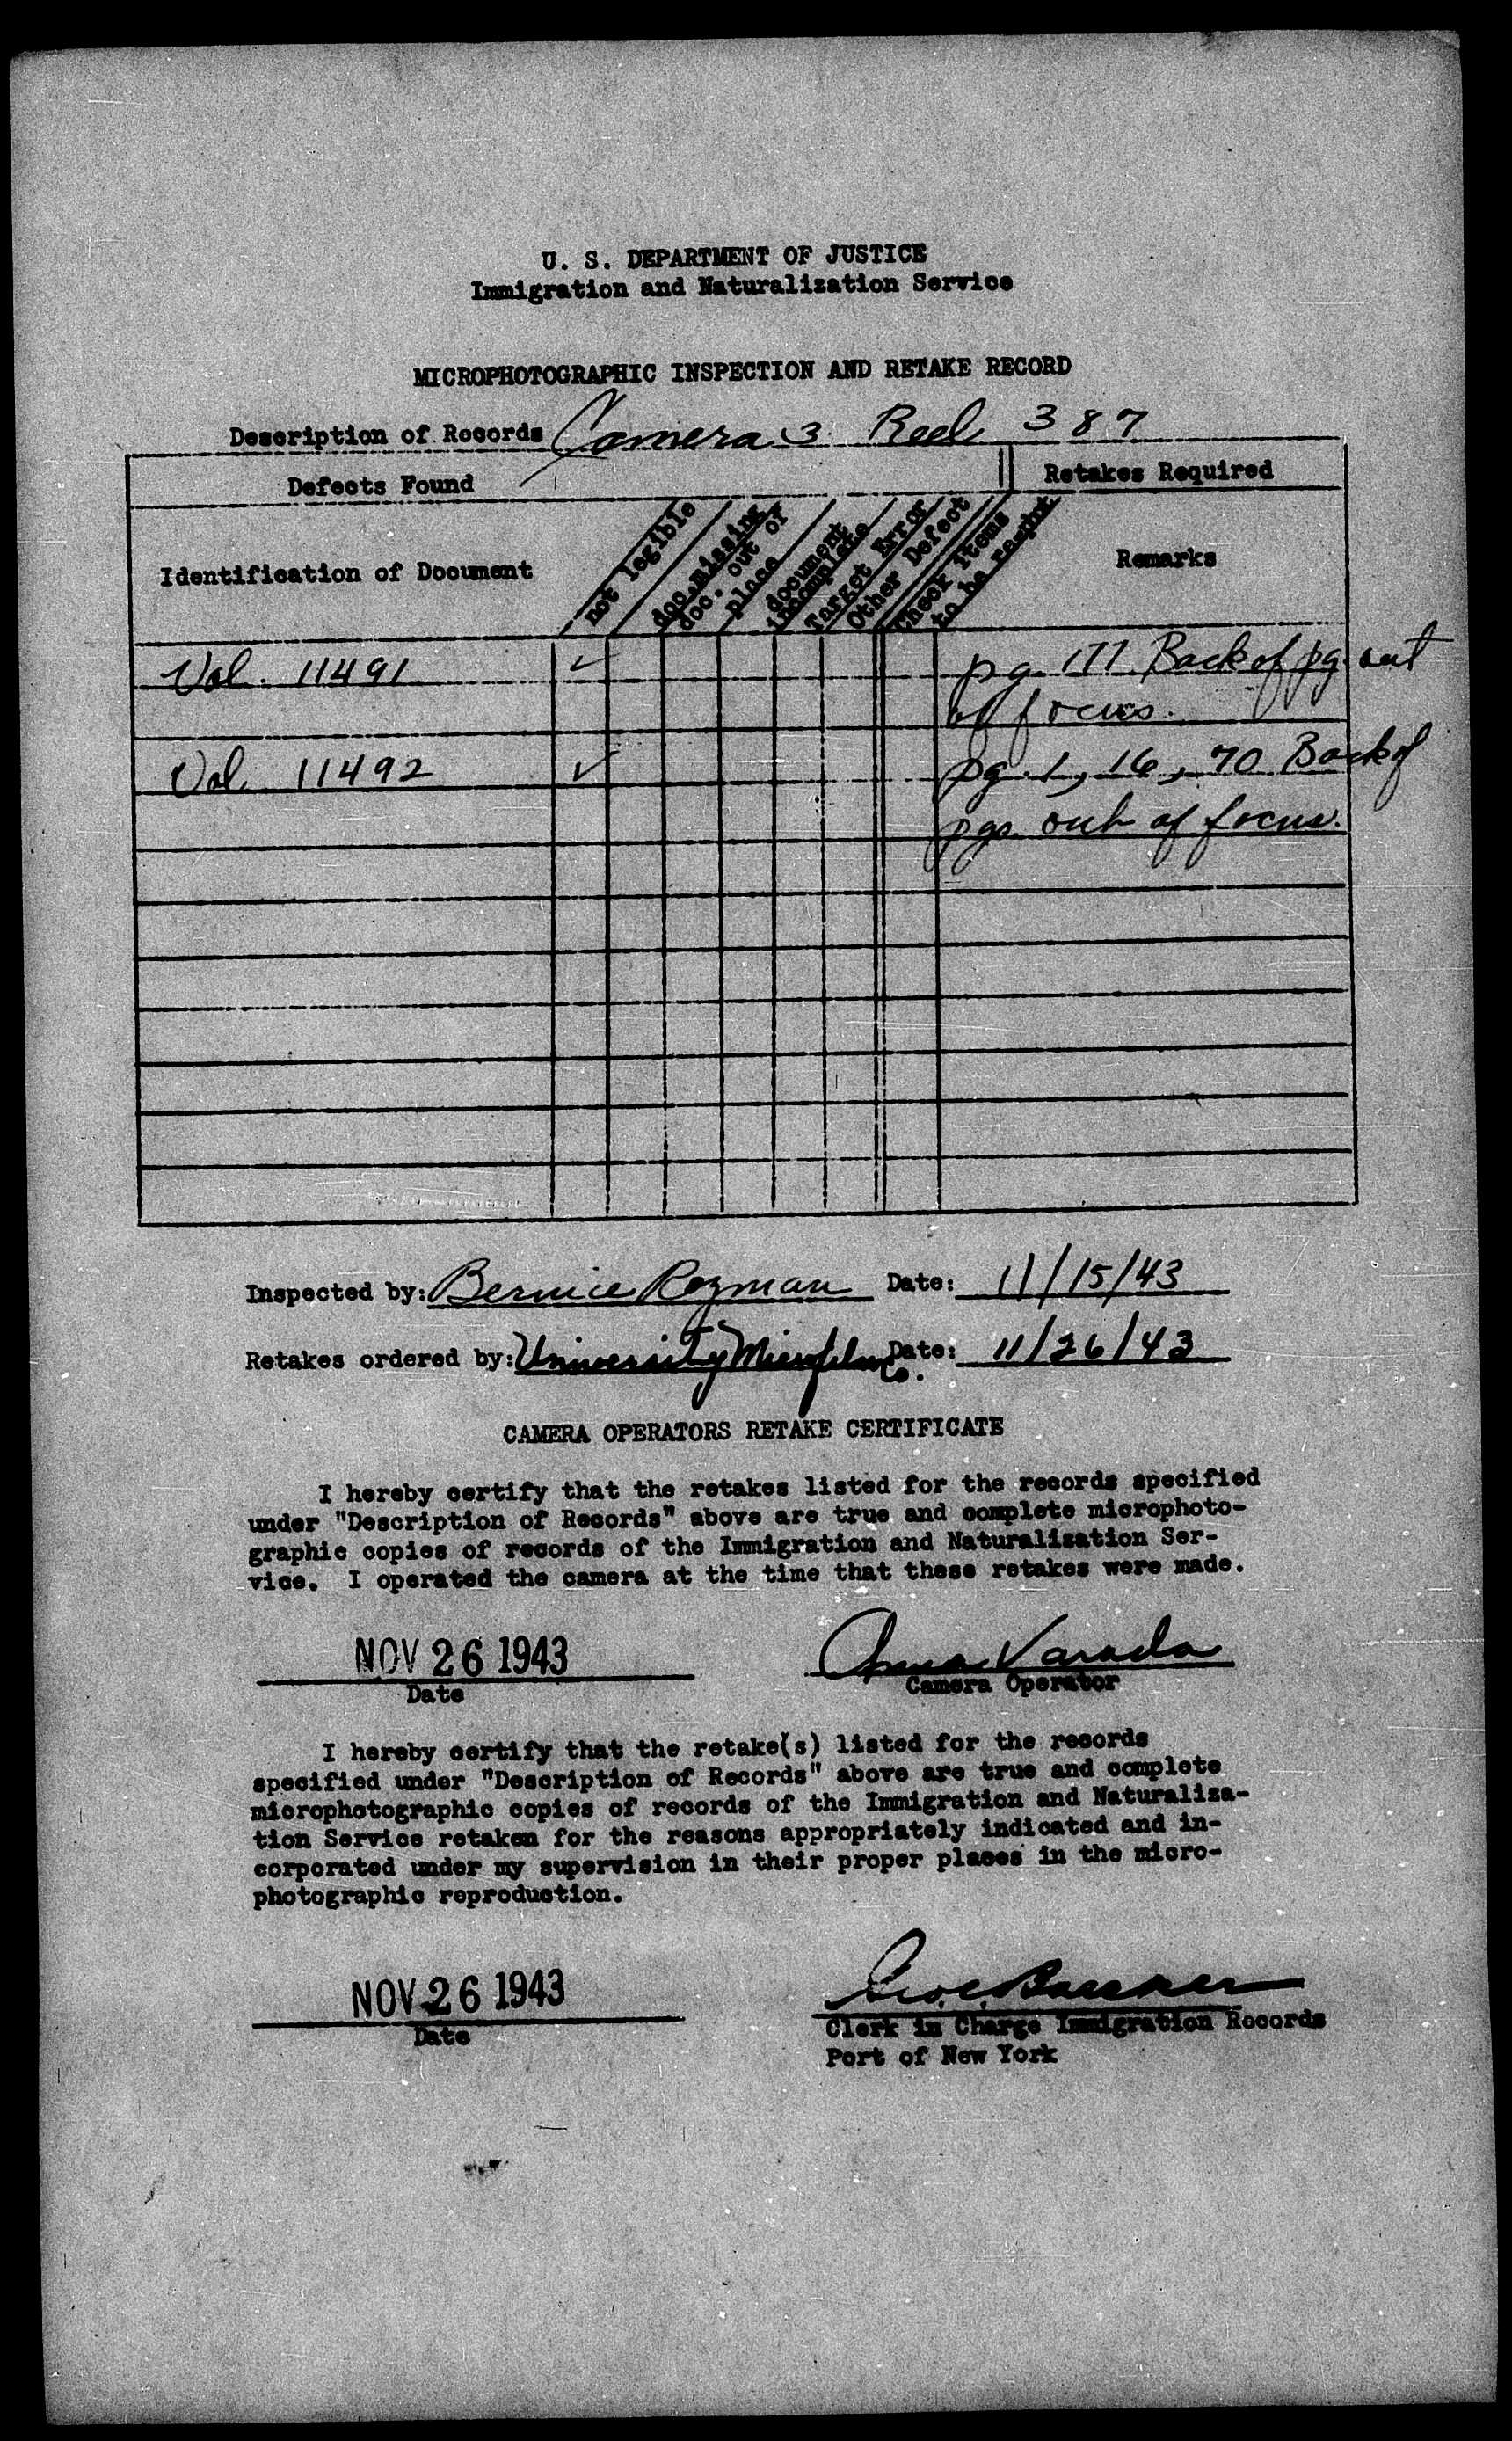 U. S. DEPARTMENT OF JUSTICE
Immigration and Naturalization Service
MICROPHOTOGRAPHIC INSPECTION AND RETAKE RECORD
Description of Records Camera 3 Reel 387
Defects Found
Retakes Required
Identification of Document
not legible
doc. missing
doc. out of
place
document
incomplete
Target Error
Other Defect
Check items
to be re-pht
Remarks
Vol. 11491 ✓ pg. 177 Back of pg. out
of focus.
Vol. 11492 ✓ pg. 1, 16, 70 Back of
pgs. out of focus.
Inspected by: Bernice Rozman Date: 11/15/43
Retakes ordered by: University Microfilms Co. Date: 11/26/43
CAMERA OPERATORS RETAKE CERTIFICATE
I hereby certify that the retakes listed for the records specified
under "Description of Records" above are true and complete microphoto-
graphic copies of records of the Immigration and Naturalization Ser-
vice. I operated the camera at the time that these retakes were made.
NOV 26 1943
Anna Varada
Date
Camera Operator
I hereby certify that the retake(s) listed for the records
specified under "Description of Records" above are true and complete
microphotographic copies of records of the Immigration and Naturaliza-
tion Service retaken for the reasons appropriately indicated and in-
corporated under my supervision in their proper places in the micro-
photographic reproduction.
NOV 26 1943
Date
Clerk in Charge Immigration Records
Port of New York